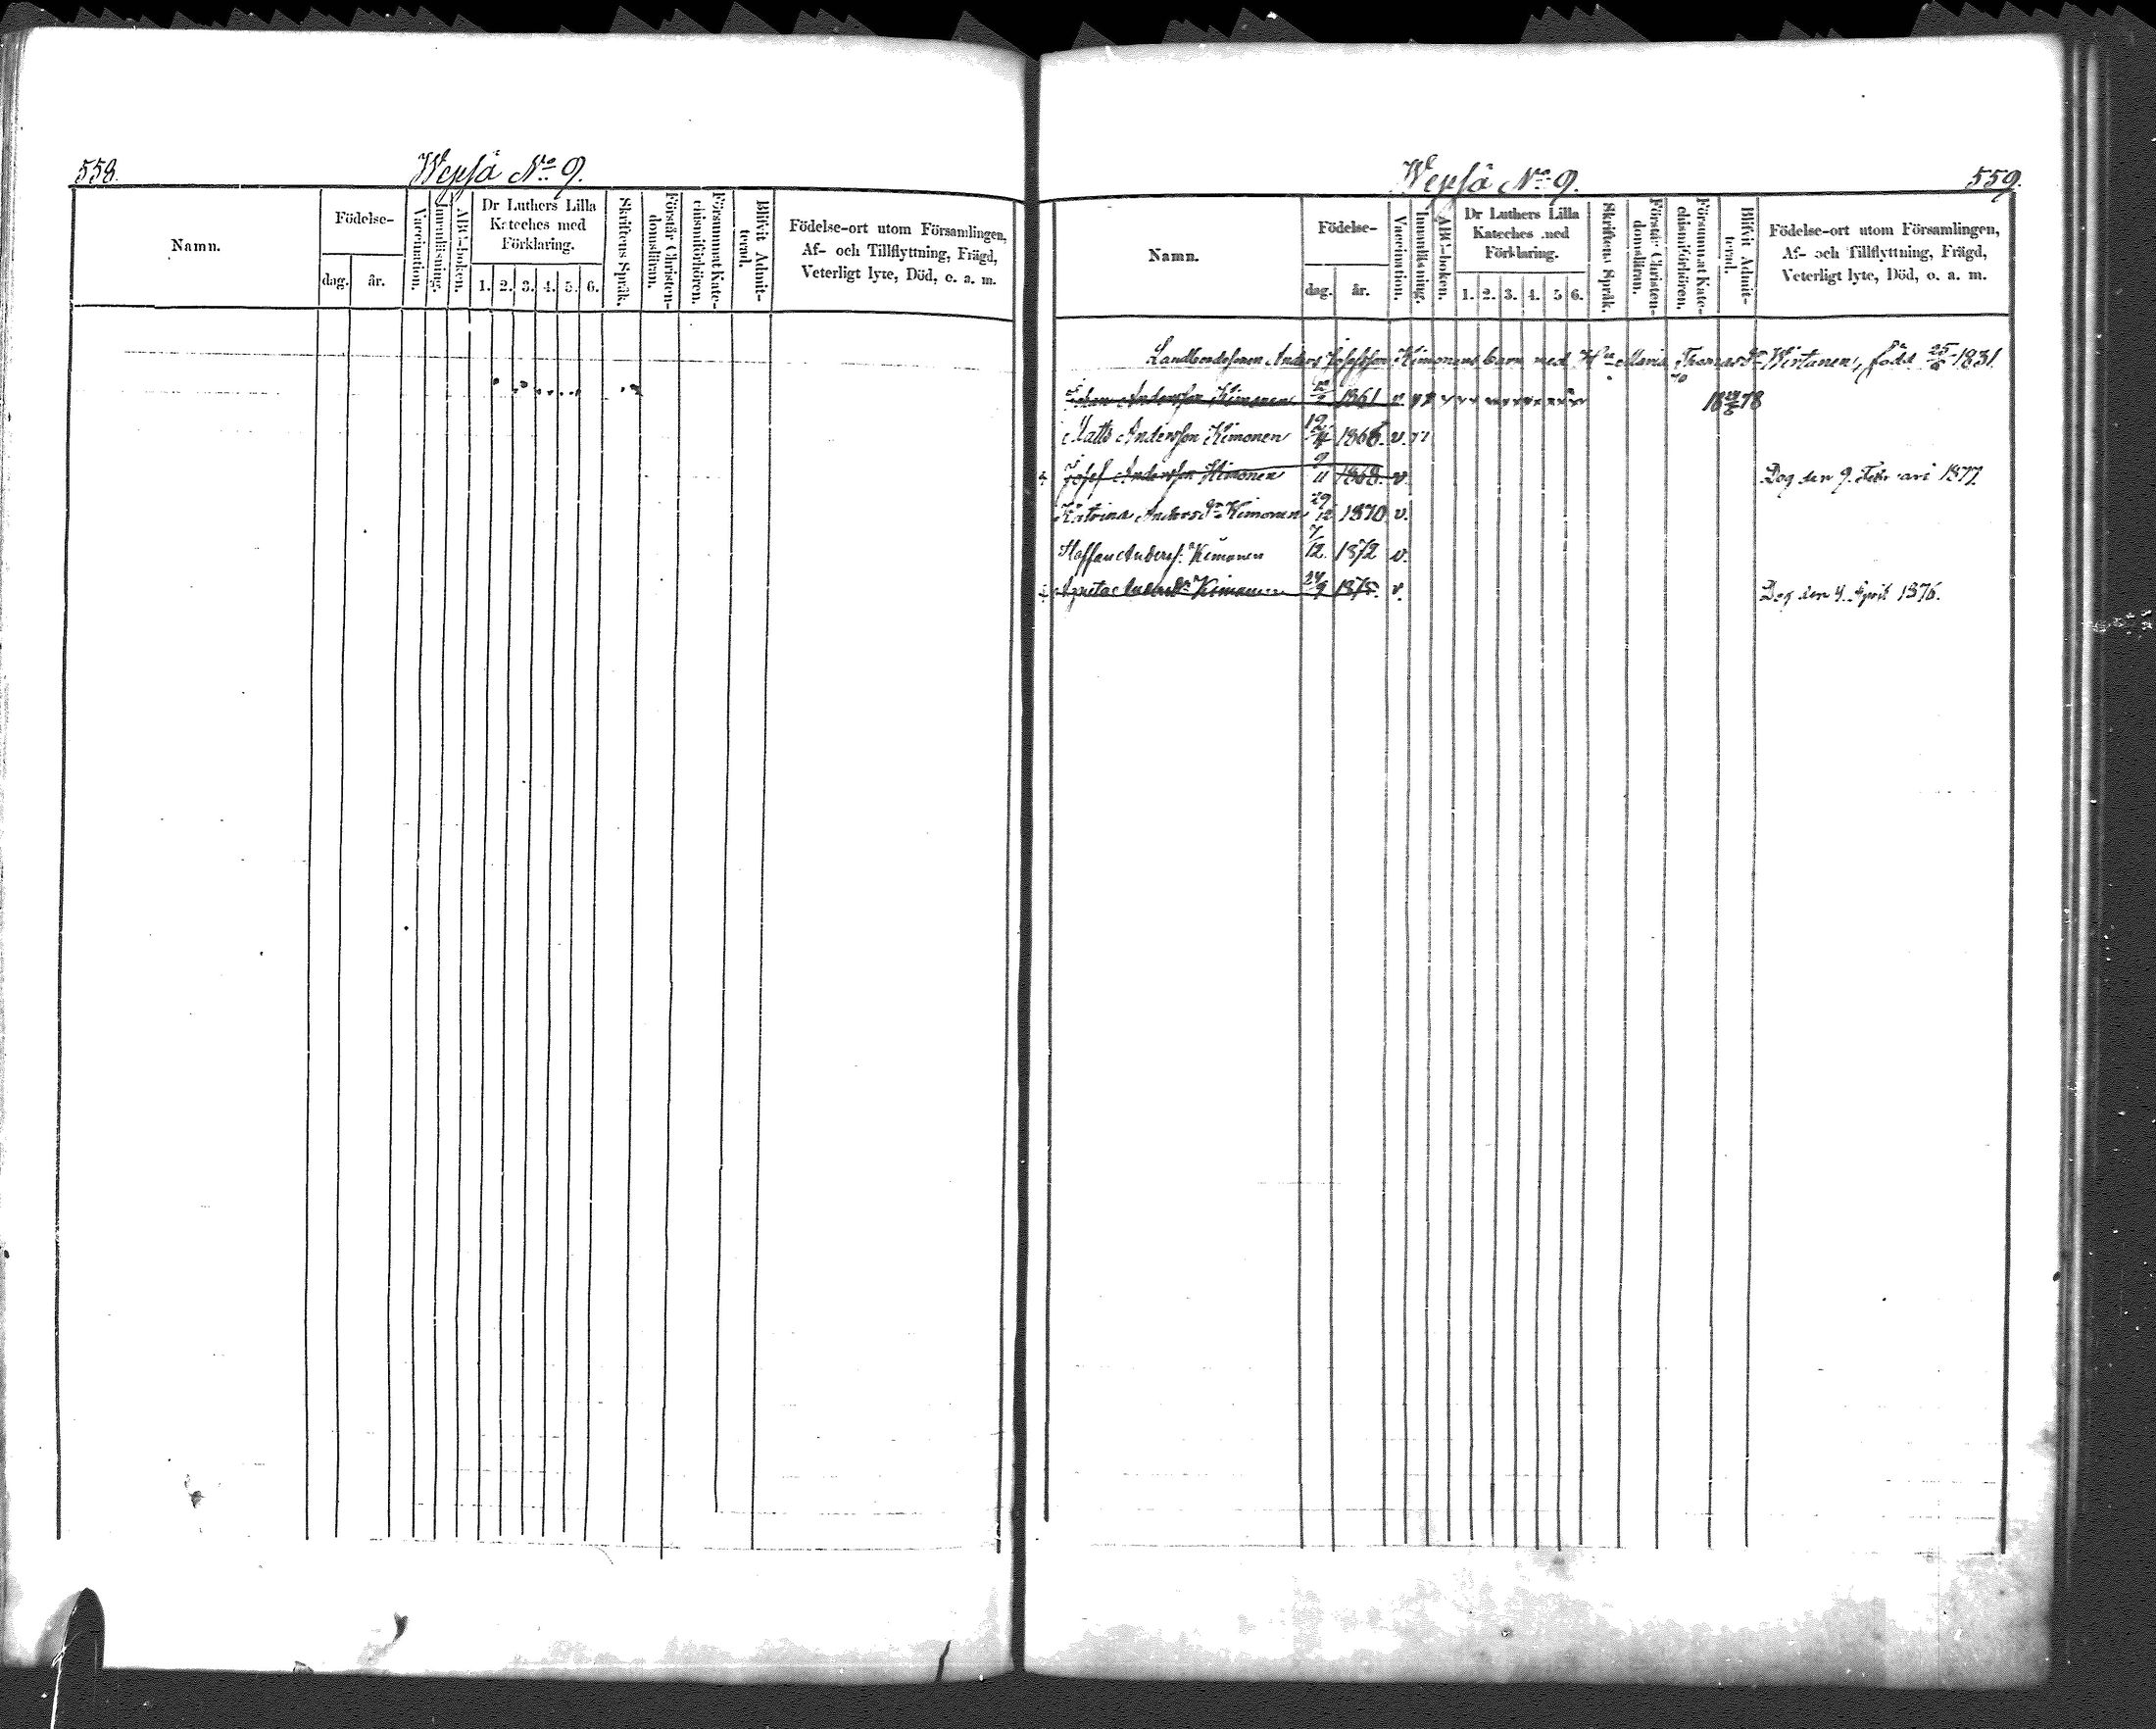 558.
Wepsä No 9.
Namn.
Födelse-
dag.
år.
Vaccination.
Innanläsning.
ABC-boken.
Dr Luthers Lilla
Kateches med
Förklaring.
1. 2. 3. 4. 5. 6.
Skriftens Språk.
Förstår Christen-
domsläran.
Försummat Kate-
chismiförhören.
Blifvit Admit-
terad.
Födelse-ort utom Församlingen,
Af- och Tillflyttning, Frägd,
Veterligt lyte, Död, o. a. m.
Wepsä No 9.
559.
Namn.
Födelse-
dag.
år.
Vaccination.
Innanläsning.
ABC-boken.
Dr Luthers Lilla
Kateches med
Förklaring.
1. 2. 3. 4. 5 6.
Skriftens Språk.
Förstår Christen-
domsläran.
Försummat Kate-
chismiförhören.
Blifvit Admit-
terad.
Födelse-ort utom Församlingen,
Af- och Tillflyttning, Frägd,
Veterligt lyte, Död, o. a. m.
Landbondesonen Anders Josefsson Kimonens barn med Maria Thomasdr Wirtanen, född 1831.
Johan Andersson Kimonen 1861 v.
Matts Andersson Kimonen 12 v.
Josef Andersson Kimonen 9/11 1868. v. Dog den 9. Februari 1877.
Katrina Andersdr Kimonen 29/12 1870 v.
Staffan Anderss. Kimonen 7/12. 1872 v.
Agneta Andersdr Kimonen 24/9 1875. v. Dog den 4. April 1876.